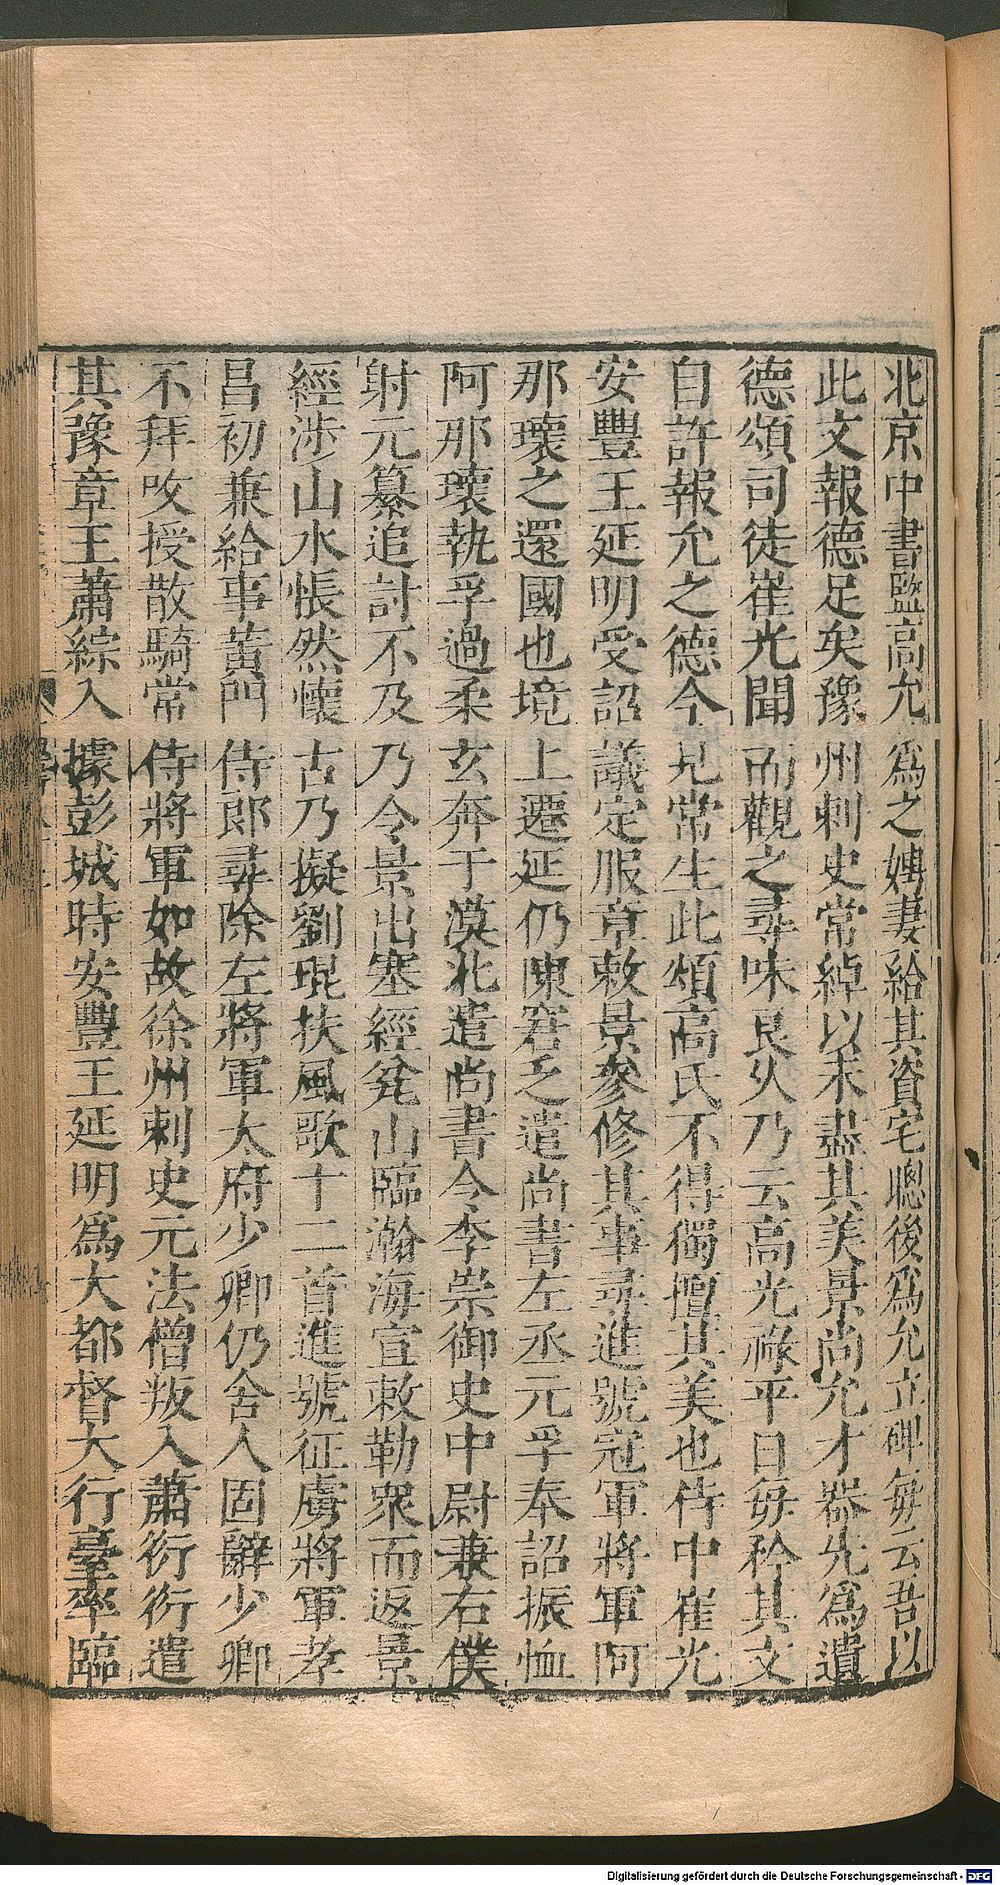 北京中書監高允爲之娉妻給其資宅聰後爲允立碑每云吾以
此文報德足矣豫州刺史常綽以未盡其美景尚允才器先爲遺
德頌司徒崔光聞而觀之尋味良久乃云高光祿平日每矜其文
自許報允之德今見常生此頌高氏不得獨擅其美也侍中崔光
安豐王延明受詔議定服章敕景參修其事尋進號冠軍將軍阿
那瓌之還國也境上遷延仍陳窘乏遣尚書左丞元孚奉詔振恤
阿那瓌執孚過柔玄奔于漠北遣尚書令李崇御史中尉兼右僕
射元纂追討不及乃令景出塞經瓫山臨瀚海宣敕勒衆而返景
經涉山水悵然懷古乃擬劉琨扶風歌十二首進號征虜將軍孝
昌初兼給事黃門侍郎尋除左將軍太府少卿仍舍人固辭少卿
不拜改授散騎常侍將軍如故徐州刺史元法僧叛入蕭衍衍遣
其豫章王蕭綜入據彭城時安豐王延明爲大都督大行臺率臨
Digitalisierung gefördert durch die Deutsche Forschungsgemeinschaft - DFG